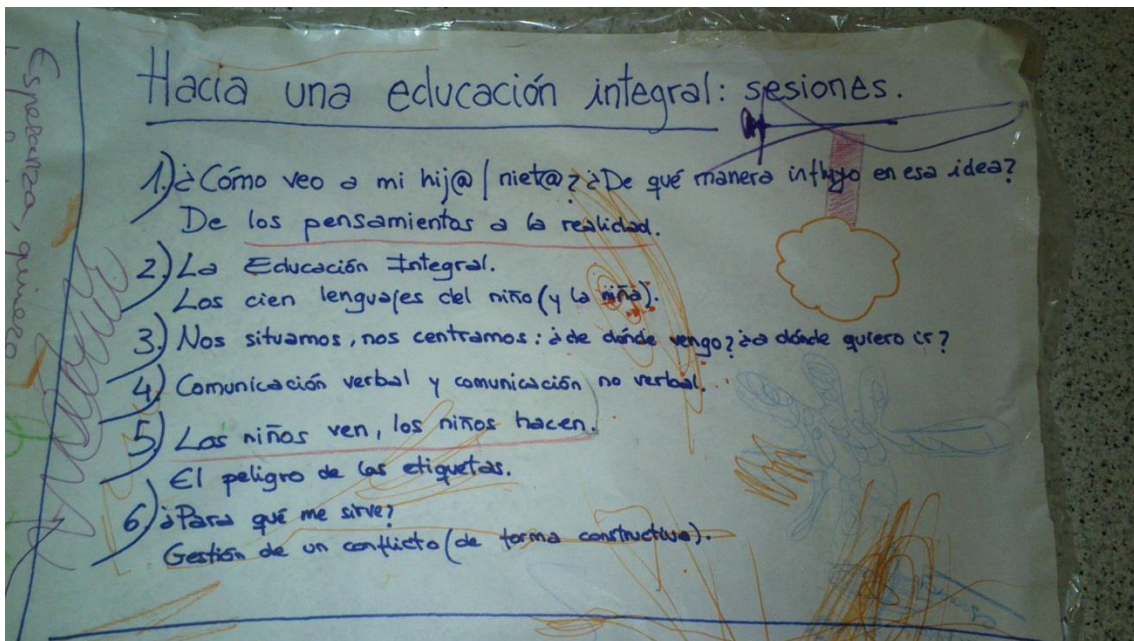 Hacia una educación integral: sesiones.
1.) ¿Cómo veo a mi hij@ / niet@? ¿De qué manera influyo en esa idea?
De los pensamientos a la realidad.
2.) La Educación Integral.
Los cien lenguajes del niño (y la niña).
3.) Nos situamos, nos centramos: ¿de dónde vengo? ¿a dónde quiero ir?
4.) Comunicación verbal y comunicación no verbal.
5.) Los niños ven, los niños hacen.
El peligro de las etiquetas.
6.) ¿Para qué me sirve?
Gestión de un conflicto (de forma constructiva).
Esperanza, quiero